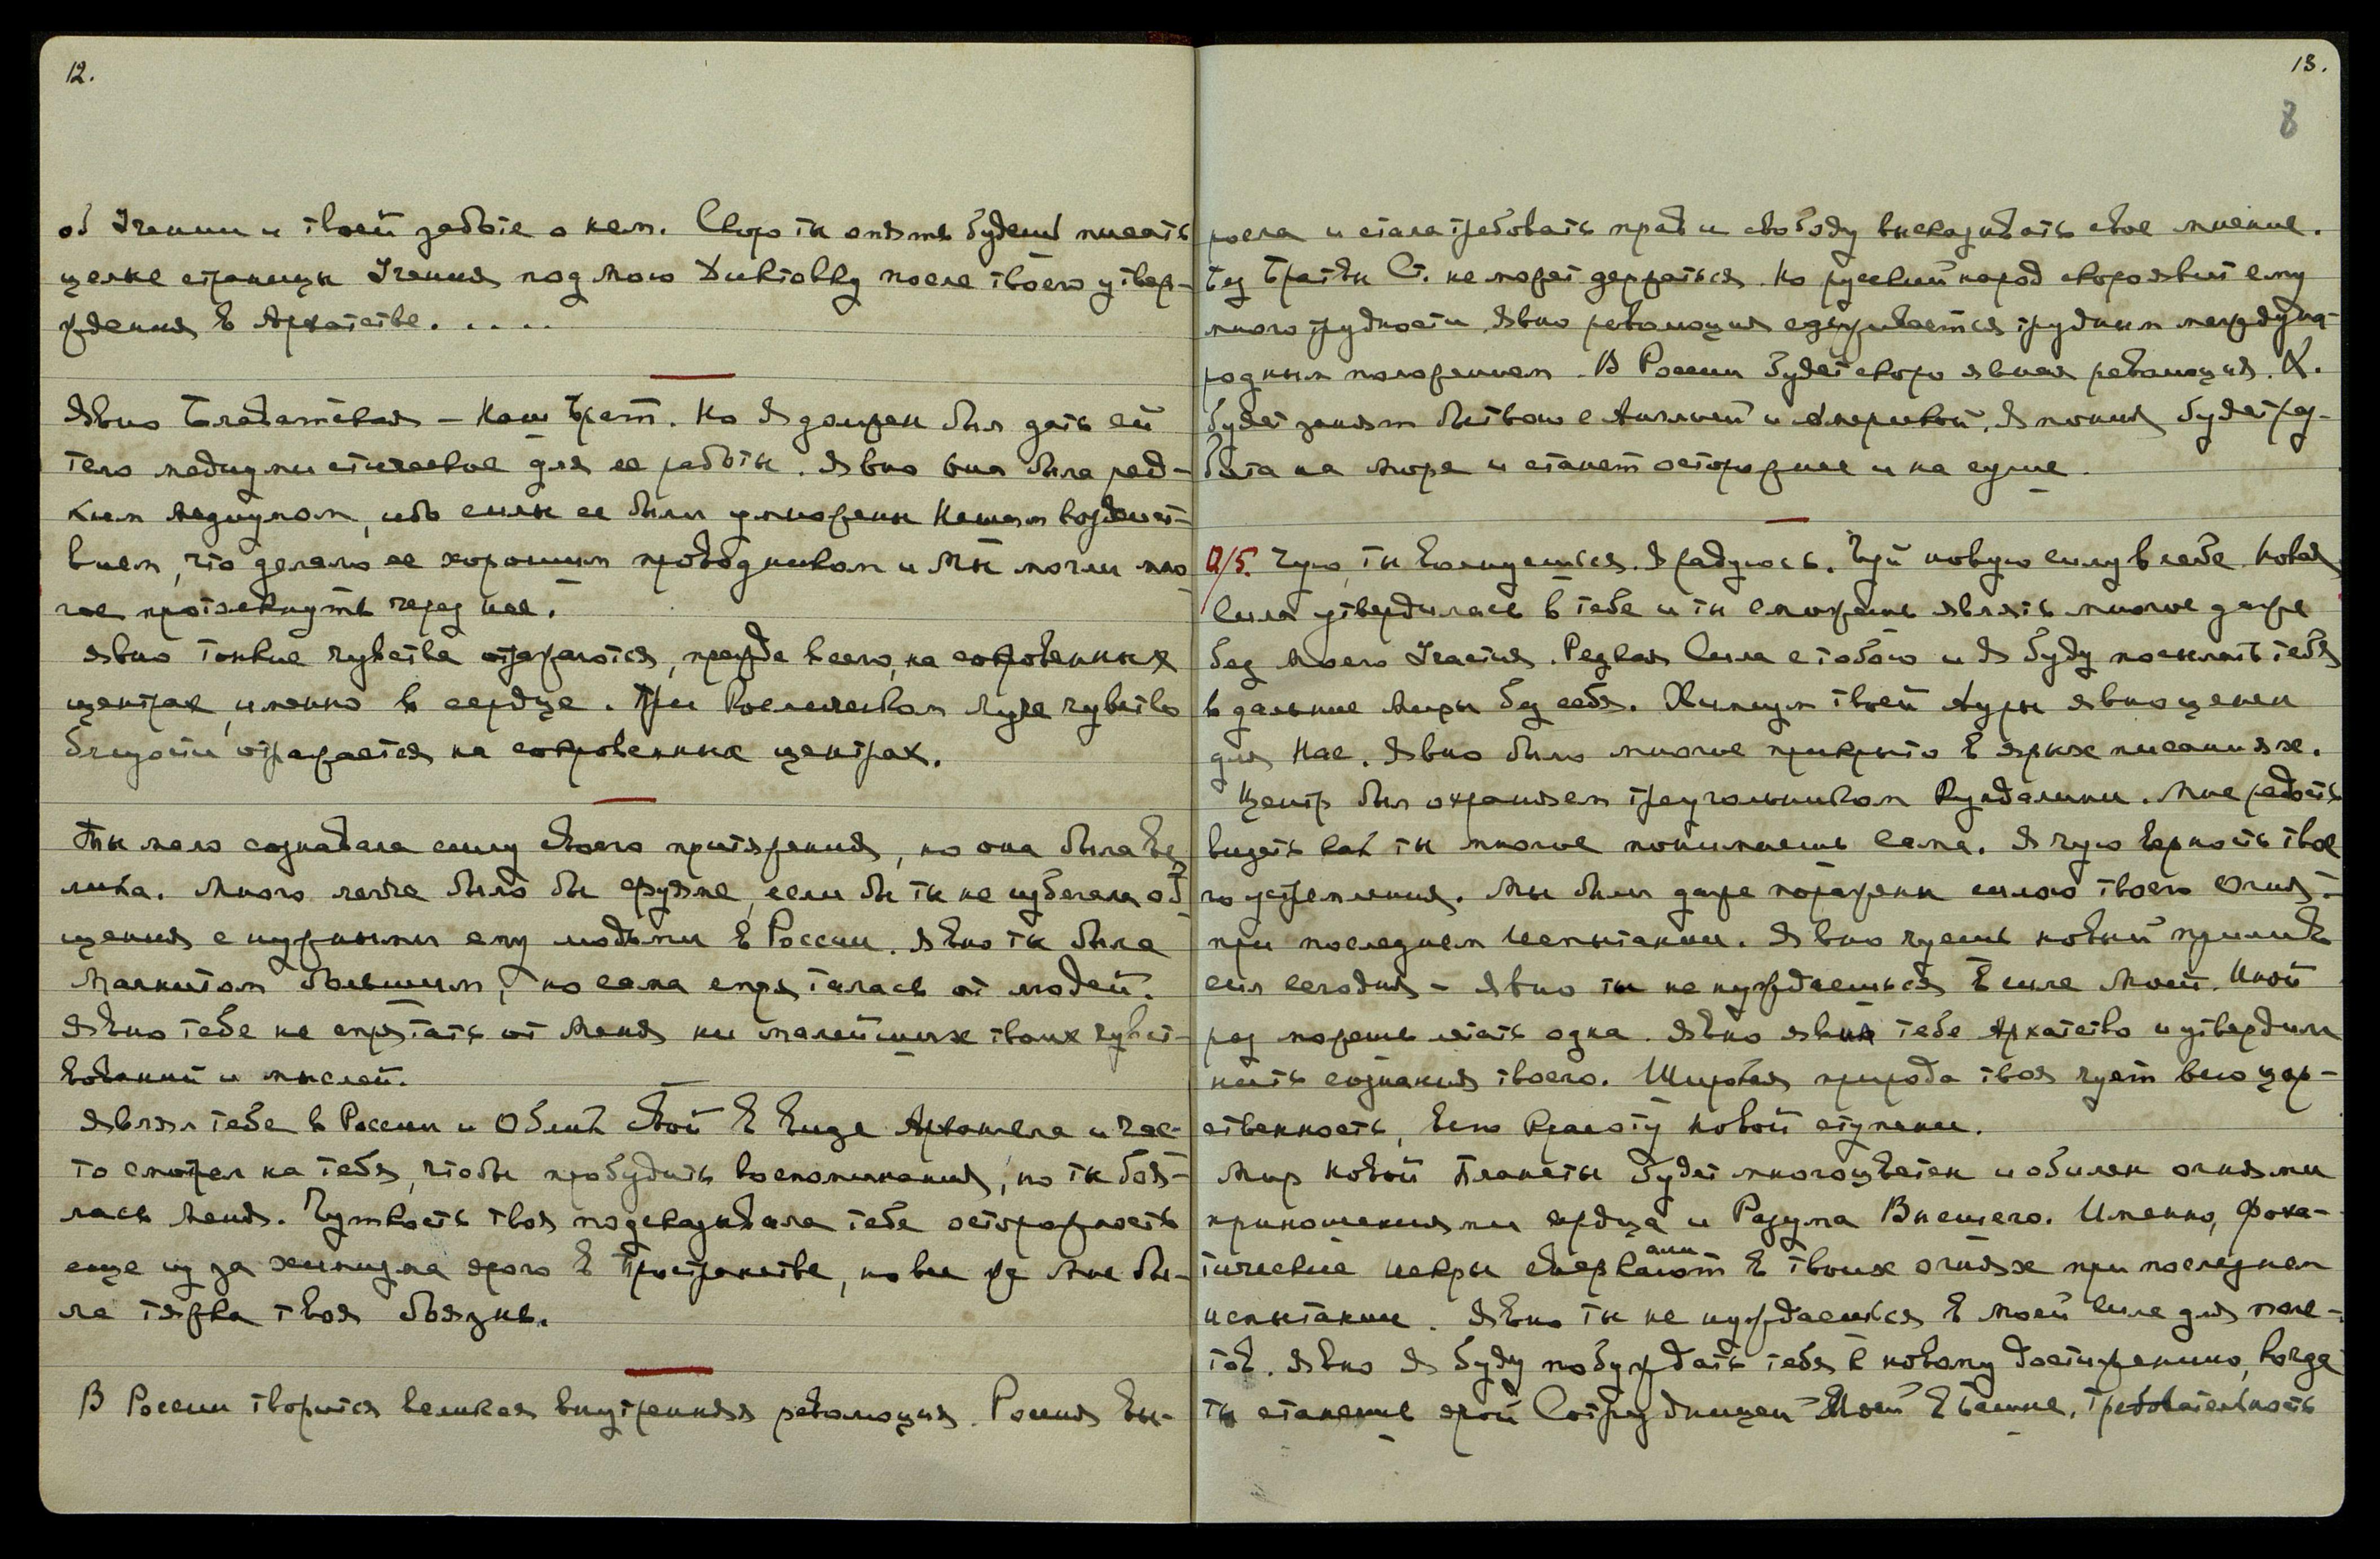 12.
об Учении и твоей заботе о нем. Скоро ты опять будешь писать
целые страницы Учения под Мою Диктовку после твоего утвер-
ждения в Архатстве. . . . .
Явно Блаватская – Наш Брат. Но Я должен был дать ей
тело медиумистическое для ее работы. Явно она была ред-
ким Медиумом, ибо силы ее были умножены Нашим воздейст-
вием, что делало ее хорошим проводником и Мы могли мно
гое протолкнуть через нее.
Явно тонкие чувства отражаются, прежде всего, на сокровенных
центрах, именно в сердце. При Космическом Луче чувство
близости отражается на сокровенных центрах.
Ты мало сознавала силу своего притяжения, но она была ве
лика. Много легче было бы Фуяме, если бы ты не избегала об
щения с нужными ему людьми в России. Явно ты была
Магнитом большим, но сама спряталась от людей.
Явно тебе не спрятать от Меня ни малейших твоих чувст-
вований и мыслей.
Являл тебе в России и Облик Свой в виде Архангела и час-
то смотрел на тебя, чтобы пробудить воспоминания, но ты боя-
лась Меня. Чуткость твоя подсказывала тебе осторожность
еще из за химизма ярого в Пространстве, но все же Мне бы-
ла тяжка твоя боязнь.
В России творится великая внутренняя революция. Россия вы-
13.
8
росла и стала требовать прав и свободу высказывать свое мнение.
Без Братьи Ст. не может держаться. Но русский народ скоро явит ему
много трудности. Явно революция сдерживается трудным междуна-
родным положением. В России будет скоро явная революция. К.
будет занят битвою с Англией и Америкой. Япония будет раз-
бита на Море и станет осторожнее и на суше.
12/5. Чую, ты волнуешься. Я радуюсь. Чуй новую силу в себе. Новая
Сила утвердилась в тебе и ты сможешь являть многое даже
без Моего Участия. Редкая Сила с тобою и Я буду посылать тебя
в дальние Миры без себя. Химизм твоей Ауры явно ценен
для Нас. Явно было многое прикрыто в ярых писаниях.
Центр был охраняем треугольником Кундалини. Мне радость
видеть как ты многое понимаешь сама. Я чую верность твое
го устремления. Мы были даже поражены силою твоего Огня
при последнем Испытании. Явно чуешь новый прилив
сил сегодня – явно ты не нуждаешься в силе Моей. Иной
раз можешь летать одна. Явно явил тебе Архатство и утвердил
нить сознания твоего. Широкая природа твоя чует всю цар-
ственность, всю Красоту новой ступени.
Мир Новой Планеты будет многоцветен и обилен огнями
приношениями сердца и Разума Высшего. Именно, Фоха-
тические искры сверкали в твоих огнях при последнем
испытании. Явно ты не нуждаешься в Моей Силе для поле-
тов. Явно Я буду побуждать тебя к новому достижению, когда
ты станешь ярой Сотрудницей Моей в Башне. Требовательность